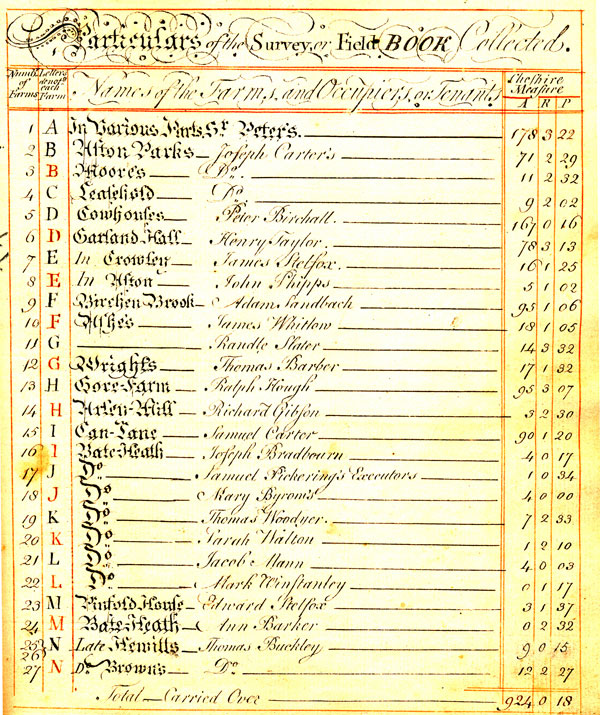 Particulars of the Survey, or Field BOOK Collected.
Numbr of Farms Letters denotg each Farm Names of the Farms, and Occupiers, or Tenants Cheshire Measure
A R P
1 A In Various Parts, Sr. Peter's. 178 3 22
2 B Aston Parks Joseph Carter's 71 2 29
3 B Moore's Do. 11 2 32
4 C Leasehold Do. 9 2 02
5 D Cowhouses Peter Birchall. 167 0 16
6 D Garland Hall Henry Taylor. 78 3 13
7 E In Crowley James Stelfox. 16 1 25
8 E In Aston John Phipps 5 1 02
9 F Birchen Brook Adam Sandbach 95 1 06
10 F Ashes James Whitlow 18 1 05
11 G Randle Slater 14 3 32
12 G Wrights Thomas Barber 17 1 32
13 H Gore-Farm Ralph Hough 95 3 07
14 H Arley-Mill Richard Gibson 3 2 30
15 I Can-Lane Samuel Carter 90 1 20
16 I Bate Heath Joseph Bradbourn 4 0 17
17 J Do Samuel Pickering's Executors 1 0 34
18 J Do Mary Byrom's 4 0 00
19 K Do Thomas Woodyer. 7 2 33
20 K Do Sarah Walton 1 2 10
21 L Do Jacob Mann 4 0 03
22 L Do Mark Winstanley 0 1 17
23 M Pinfold House Edward Stelfox 3 1 37
24 M Bate Heath Ann Barker 0 2 32
25 26 N Late Hewills Thomas Buckley 9 0 15
27 N Do. Brown's Do. 12 2 27
Total Carried Over 924 0 18